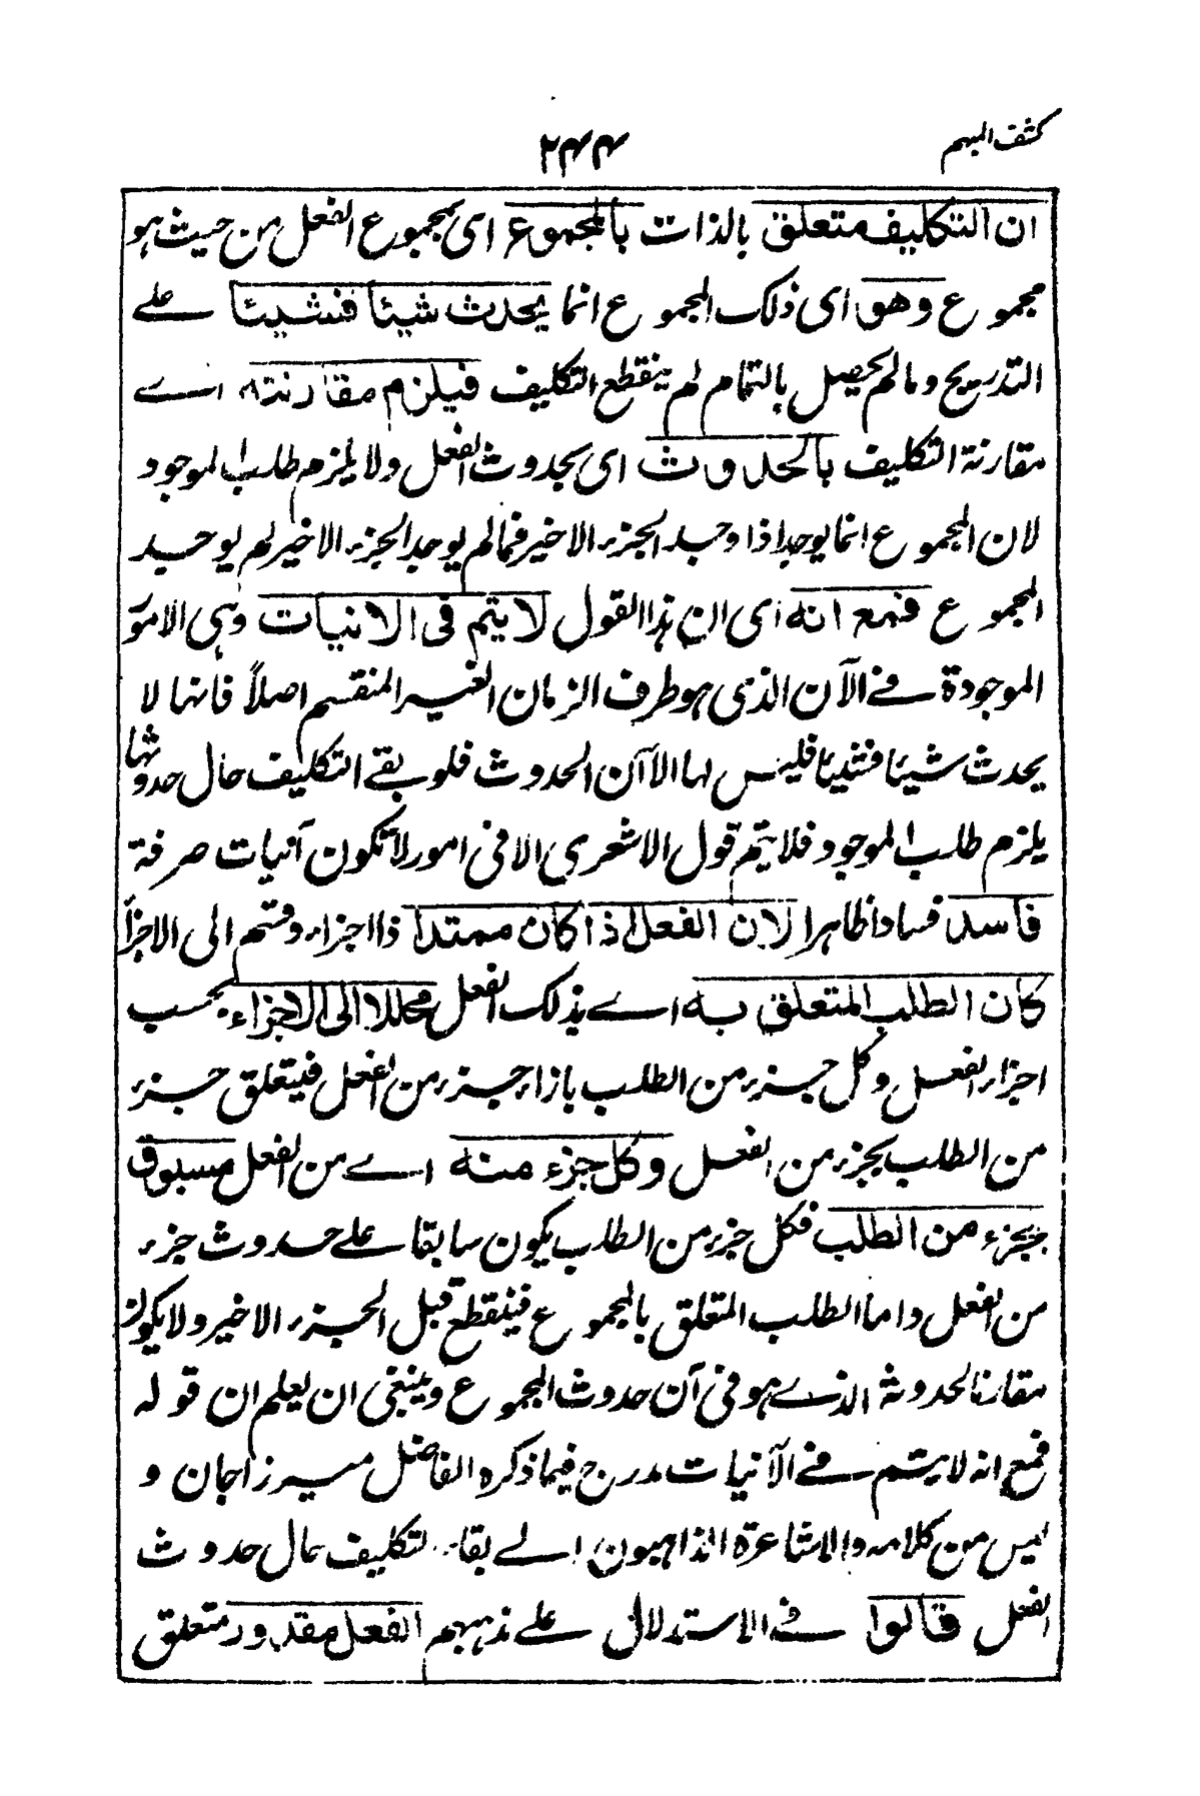 كشف المبهم
۲۴۴
ان التكليف متعلق بالذات بالمجموع اى بمجموع الفعل من حيث هو
مجموع وهو اى ذلك المجموع انما يحدث شيئا فشيئا على
التدريج ومالم يحصل بالتمام لم ينقطع التكليف فيلزم مقارنته اے
مقارنة التكليف بالحدوث اى بحدوث الفعل ولا يلزم طلب الموجود
لان المجموع انما يوجد اذا وجد الجزء الاخير فمالم يوجد الجزء الاخير لم يوجد
المجموع فمع انه اى ان هذا القول لا يتم فى الانيات وهى الامور
الموجودة فے الآن الذى هو طرف الزمان الغير المنقسم اصلاً فانها لا
يحدث شيئا فشيئا فليس لها الا آن الحدوث فلو بقے التكليف حال حدوثها
يلزم طلب الموجود فلا يتم قول الاشعري الا فى امور لا تكون آنيات صرفة
فاسد فسادا ظاهرا لان الفعل اذا كان ممتدا ذا اجزاء وقسم الى الاجزاء
كان الطلب المتعلق به اے بذلك الفعل محللا الى الاجزاء بحسب
اجزاء الفعل وكل جزء من الطلب بازاء جزء من الفعل فيتعلق جزء
من الطلب بجزء من الفعل وكل جزء منه اے من الفعل مسبوق
بجزء من الطلب فكل جزء من الطلب يكون سابقا على حدوث جزء
من الفعل واما الطلب المتعلق بالمجموع فينقطع قبل الجزء الاخير ولا يكون
مقارنا لحدوثه الذے هو فى آن حدوث المجموع وينبغى ان يعلم ان قوله
فمع انه لا يتم فے الآنيات مدرج فيما ذكره الفاضل ميرزاجان و
ليس من كلامه والاشاعرة الذاهبون الے بقاء التكليف حال حدوث
الفعل قالوا فے الاستدلال على مذهبهم الفعل مقدور متعلق